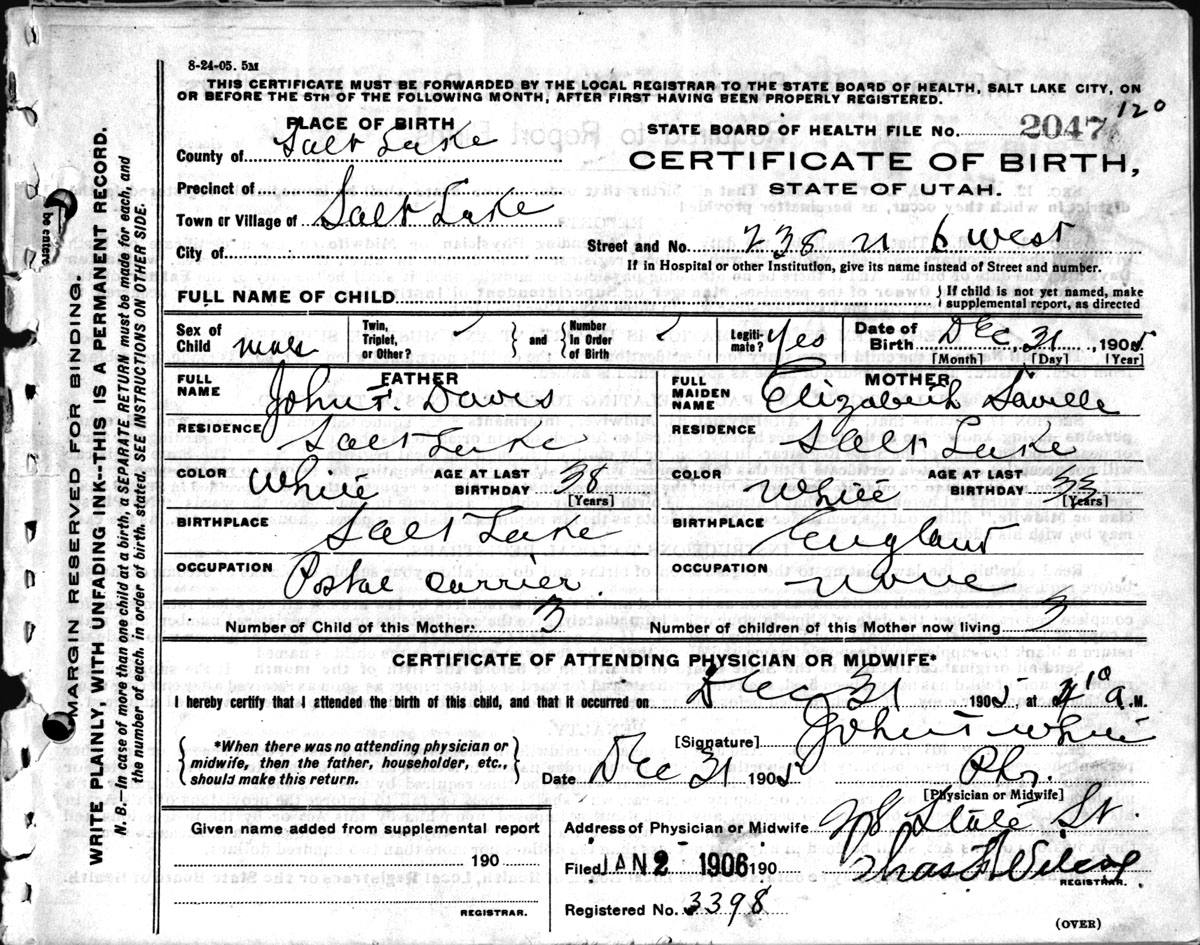 8-24-05. 5M
THIS CERTIFICATE MUST BE FORWARDED BY THE LOCAL REGISTRAR TO THE STATE BOARD OF HEALTH, SALT LAKE CITY, ON
OR BEFORE THE 5TH OF THE FOLLOWING MONTH, AFTER FIRST HAVING BEEN PROPERLY REGISTERED.
120
PLACE OF BIRTH
STATE BOARD OF HEALTH FILE No. 2047
County of Salt Lake
CERTIFICATE OF BIRTH,
Precinct of
STATE OF UTAH.
Town or Village of Salt Lake
City of
Street and No. 238 N 6 West
If in Hospital or other Institution, give its name instead of Street and number.
FULL NAME OF CHILD
{ If child is not yet named, make
supplemental report, as directed
Sex of Child male
Twin, Triplet, or Other?
and
Number in Order of Birth
Legitimate? Yes
Date of Birth Dec, 31, 1905
[Month] [Day] [Year]
FATHER
FULL NAME John T. Davis
RESIDENCE Salt Lake
COLOR White AGE AT LAST BIRTHDAY 38 [Years]
BIRTHPLACE Salt Lake
OCCUPATION Postal Carrier
MOTHER
FULL MAIDEN NAME Elizabeth Saville
RESIDENCE Salt Lake
COLOR White AGE AT LAST BIRTHDAY 33 [Years]
BIRTHPLACE England
OCCUPATION None
Number of Child of this Mother: 3 Number of children of this Mother now living 3
CERTIFICATE OF ATTENDING PHYSICIAN OR MIDWIFE*
I hereby certify that I attended the birth of this child, and that it occurred on Dec 31 1905 at a. M.
*When there was no attending physician or
midwife, then the father, householder, etc.,
should make this return.
[Signature] John T White
Date Dec 31 1905 Phy.
[Physician or Midwife]
Given name added from supplemental report
190
REGISTRAR.
Address of Physician or Midwife State St.
Filed JAN 2 1906 190
REGISTRAR.
Registered No. 3398
(OVER)
MARGIN RESERVED FOR BINDING.
WRITE PLAINLY, WITH UNFADING INK--THIS IS A PERMANENT RECORD.
N. B.—In case of more than one child at a birth, a SEPARATE RETURN must be made for each, and
the number of each, in order of birth stated. SEE INSTRUCTIONS ON OTHER SIDE.